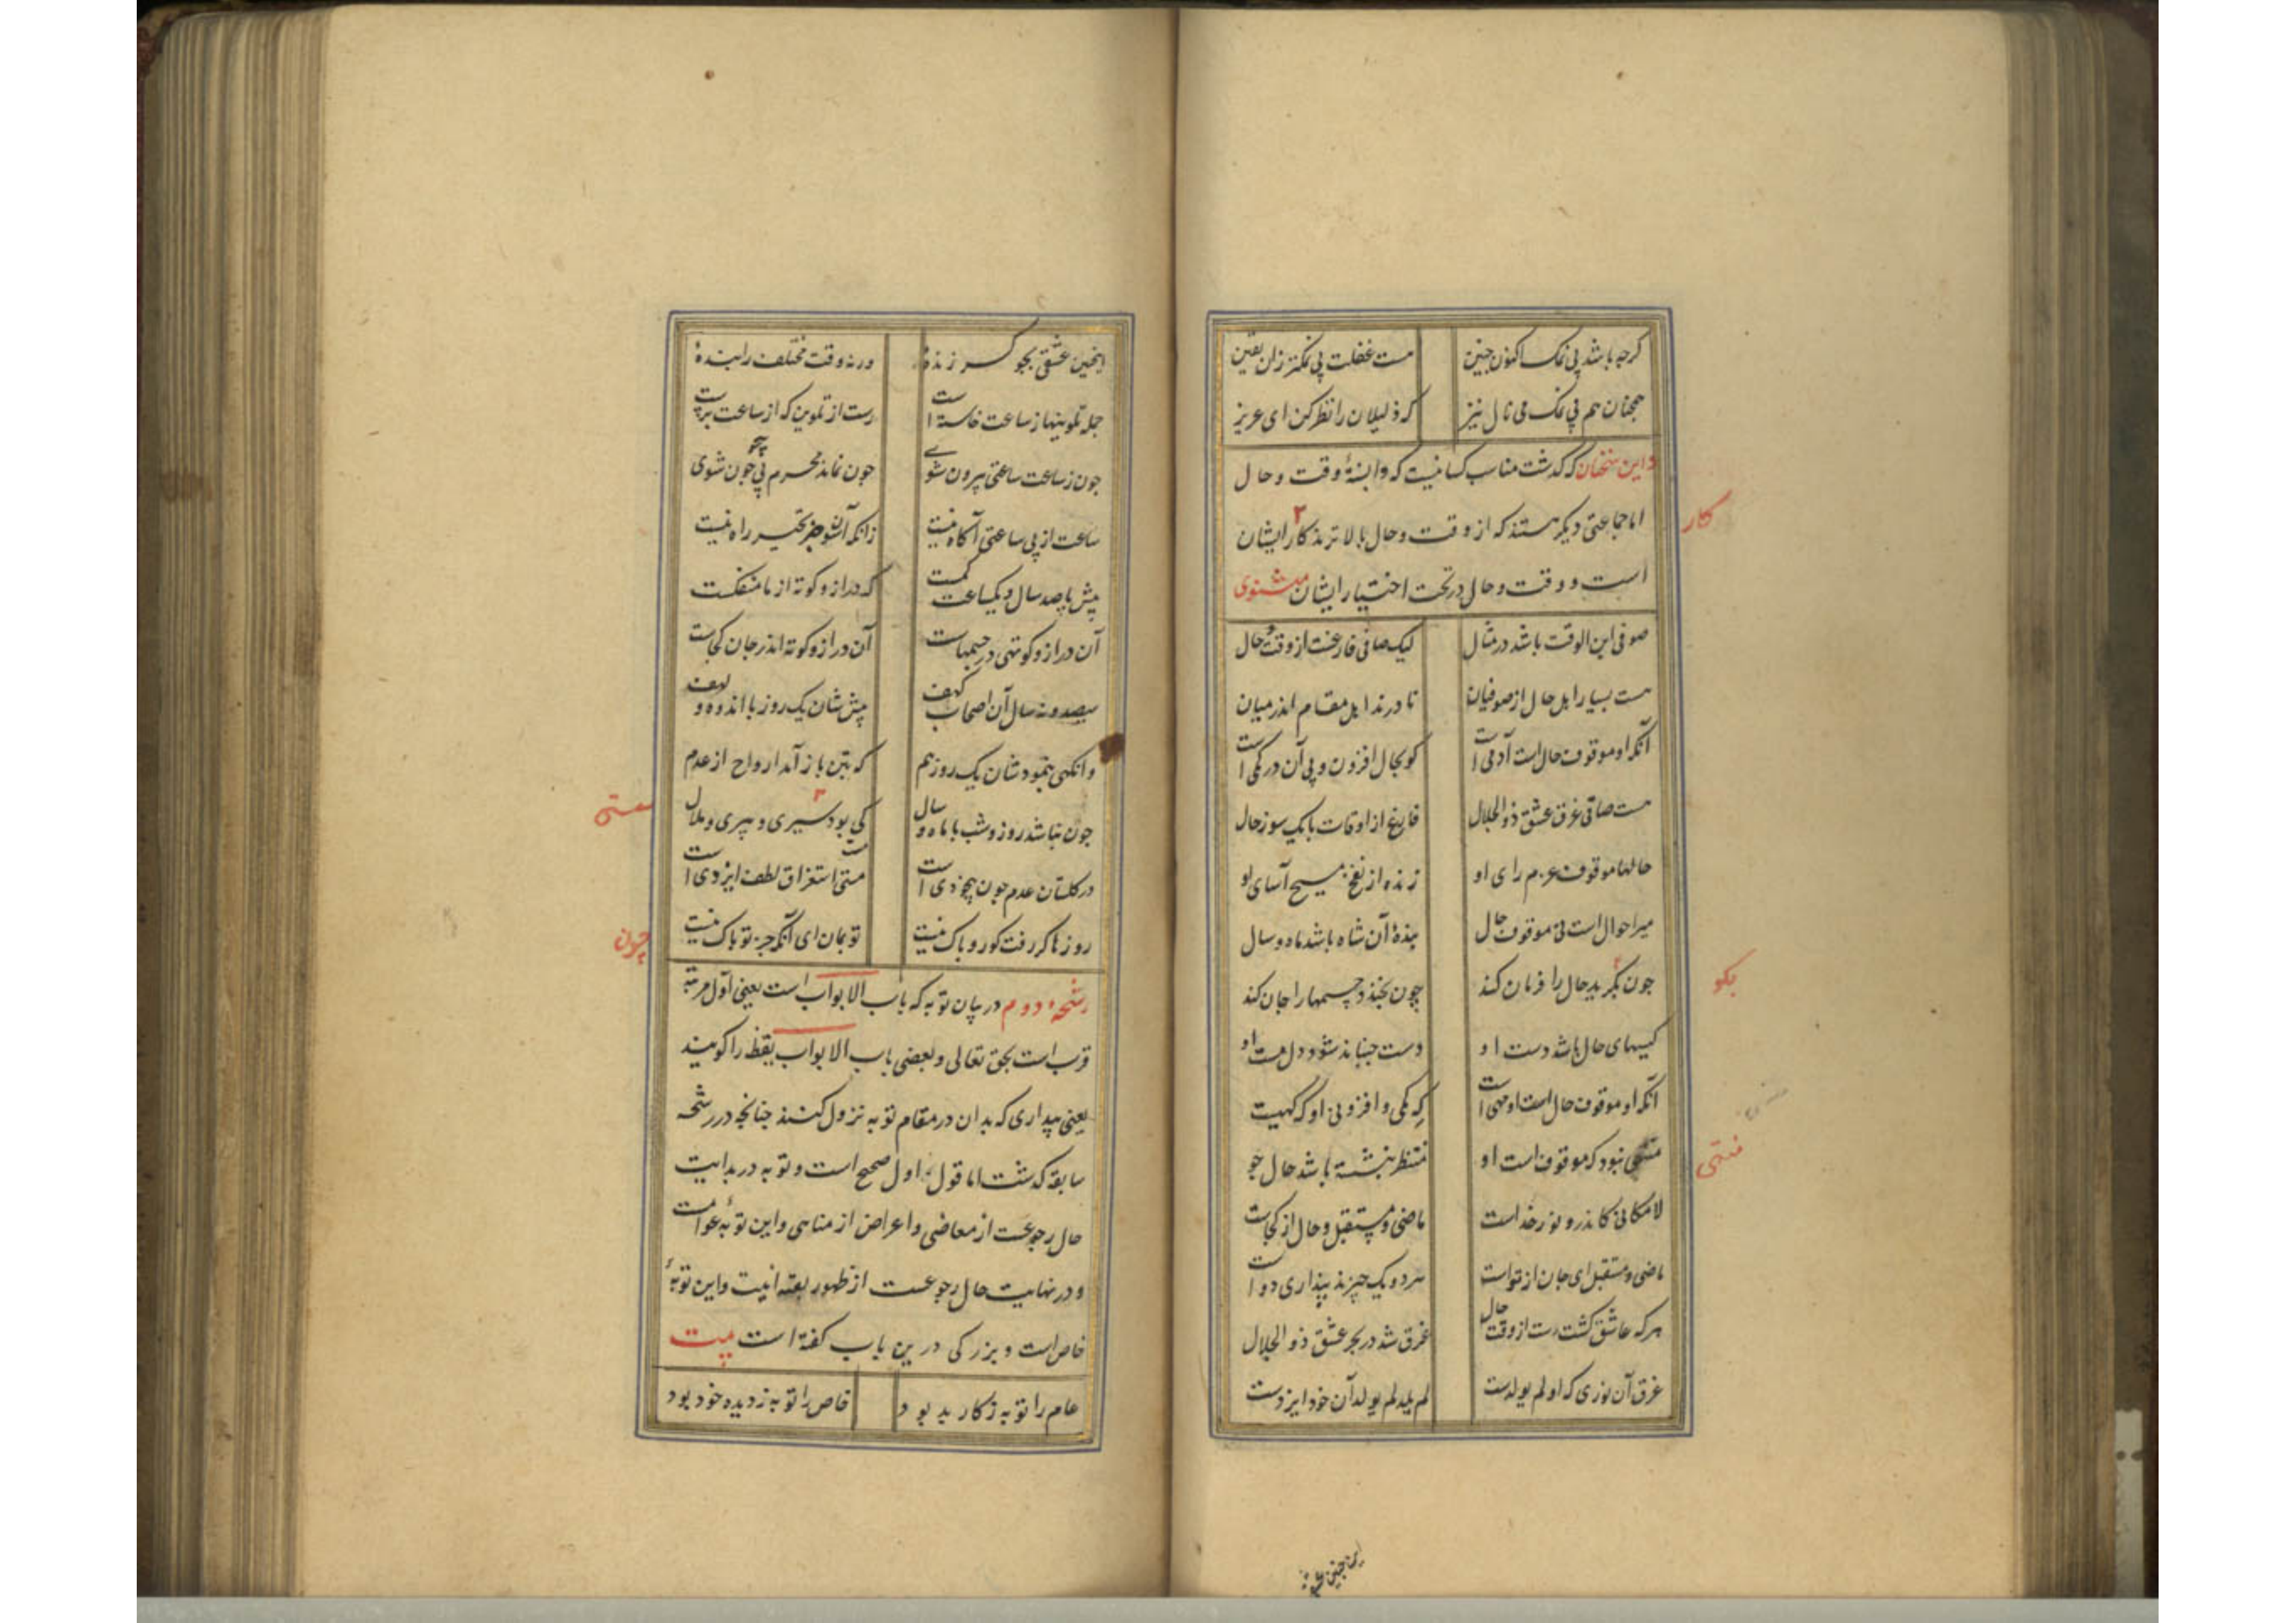 کرچه باشد بی نمک اکنون چنین هست غفلت بی نمکتر زان یقین
همچنان هم بی نمک می نال نیز که ذلیلان را نظر کن ای عزیز
و این سخنان که گذشت مناسب کسانیست که وابستهٔ وقت و حال
اما جماعتی دیگر هستند که از وقت و حال بالاترند کار ایشان
کار
است و وقت و حال در تحت اختیار ایشان مثنوی
صوفی ابن الوقت باشد در مثال لیک صافی فارغست از وقت و حال
هست بسیار اهل حال از صوفیان نادرند اهل مقام اندر میان
آنکه او موقوف حال است آدمی است کو بحال افزون و بی آن در کمی است
هست صافی غرق عشق ذوالجلال فارغ از اوقات بانک سوز حال
حالها موقوف عزم رای او زنده از نفخ مسیح آسای او
میر احوال است نی موقوف حال بندهٔ آن شاه باشد ماه و سال
چون بگوید حال را فرمان کند چون بخندد جسمها را جان کند
بگو
کیمیای حال باشد دست او دست جنباند شود دل مست او
آنکه او موقوف حال است او مهی است که کمی و افزونی او گهیست
منتهی نبود که موقوف است او منتظر بنشسته باشد حال جو
منتهی
لامکانی کاندرو نور خداست ماضی و مستقبل و حال از کجاست
ماضی و مستقبل ای جان از تو است هر دو یک چیزند پنداری دو است
هر که عاشق کشت رست از وقت حال غرق شد در بحر عشق ذوالجلال
غرق آن نوری که او لم یولدست لم یلد لم یولد آن خود ایزدست
اینچنین عشقی
اینچنین عشقی بجو گر زنده ورنه وقت مختلف را بنده
جمله تلوینها ز ساعت خاسته است رست از تلوین که از ساعت برست
چون ز ساعت ساعتی بیرون شوی چون نماند محرم بی چون شوی
ساعت از بی ساعتی آگاه نیست زانکه آنسو جز تحیر راه نیست
پیش ما صد سال و یکساعت یکست که دراز و کوته از ما منفکست
آن دراز و کوتهی در جسمهاست آن دراز و کوته اندر جان کجاست
سیصد و نه سال آن اصحاب کهف پیش شان یک روز با اندوه و لهف
وانکهی بنمود شان یک روز هم که بتن باز آمد ارواح از عدم
چون نباشد روز و شب با ماه و سال کی بود سیری و پیری و ملال
در کلستان عدم چون بیخودی است مستی استغراق لطف ایزدی است
مستی
روزها کر رفت کو رو باک نیست تو بمان ای آنکه جز تو پاک نیست
چون
رشحه دوم در بیان توبه که باب الابواب است یعنی اول مرتبه
قرب است بحق تعالی و بعضی باب الابواب یقظه را گویند
یعنی بیداری که بدان در مقام توبه نزول کنند چنانچه در رشحه
سابقه گذشت اما قول اول صحیح است و توبه در بدایت
حال رجوعست از معاصی و اعراض از مناهی و این توبهٔ عوام است
و در نهایت حال رجوعست از ظهور بقیه انیت و این توبهٔ
خاص است و بزرکی درین باب گفته است بیت
عام را توبه ز کار بد بود خاص را توبه ز دیده خود بود